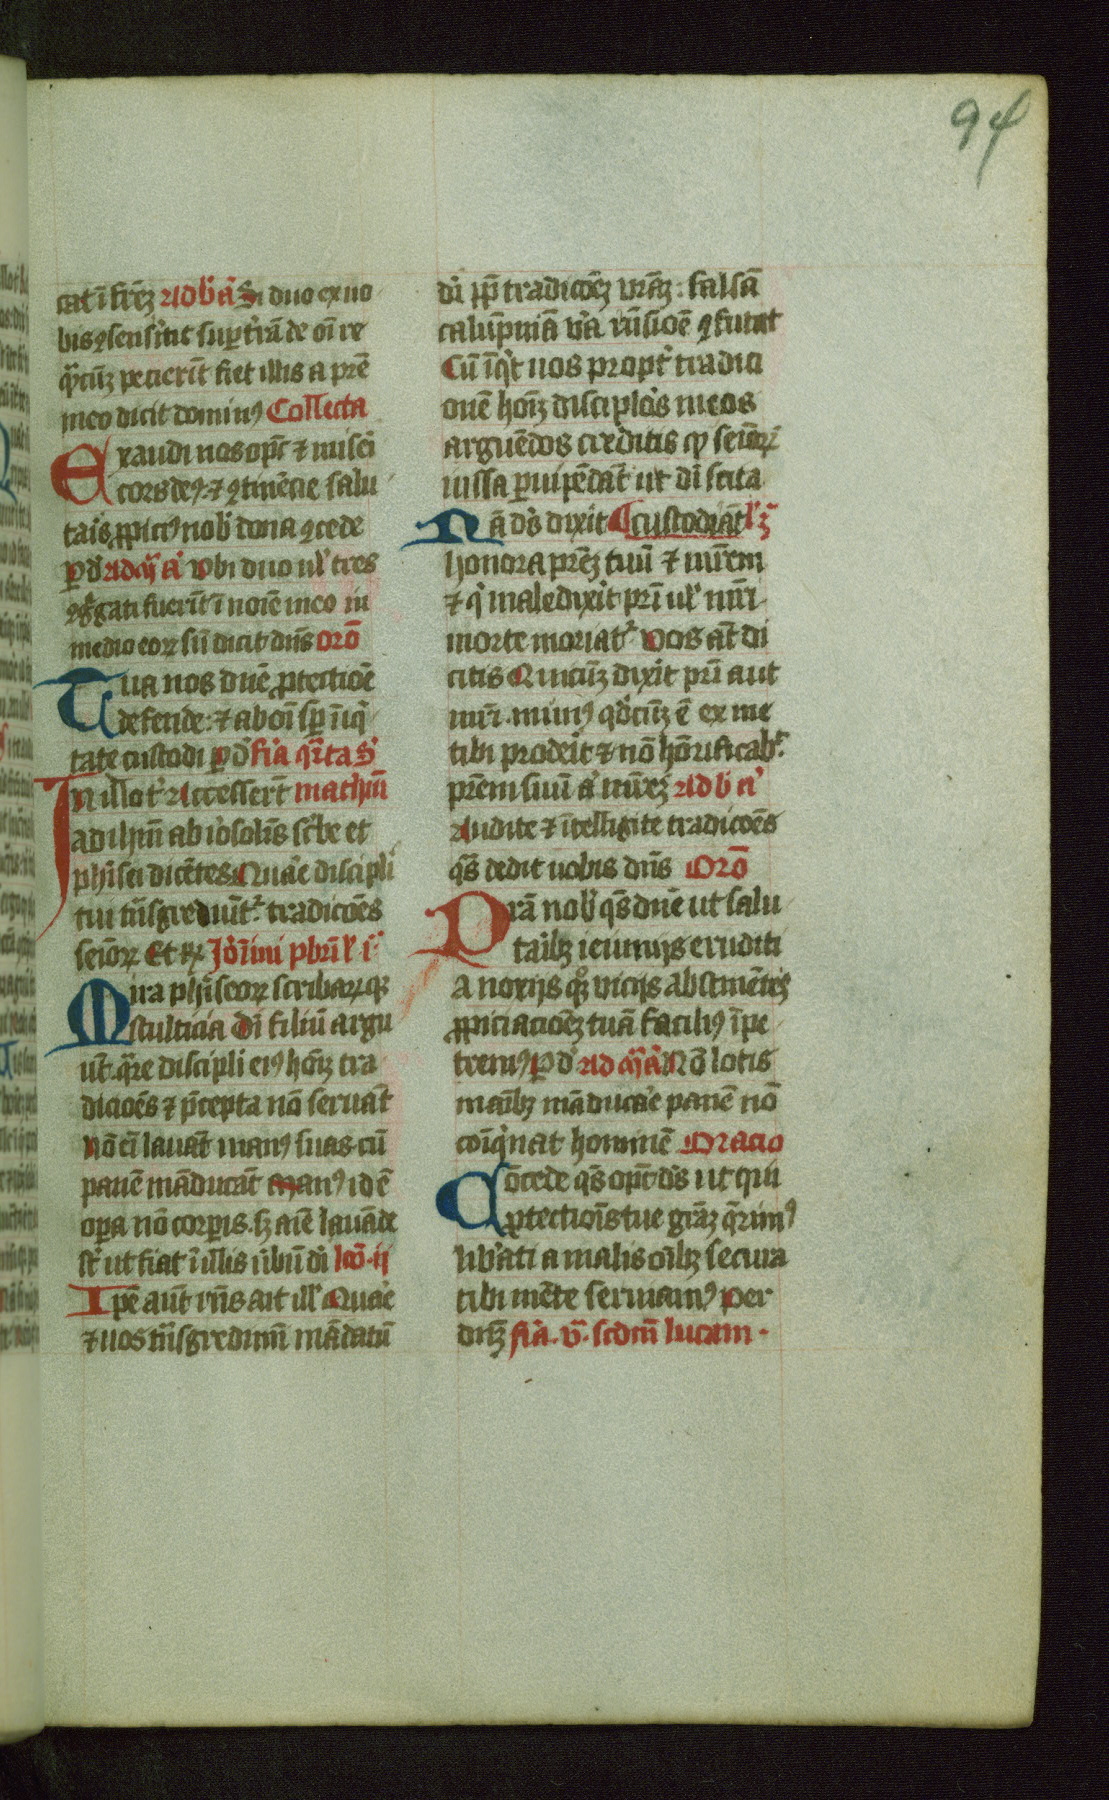 94
cat ī frēz Ad bn̄ a Si duo ex uo
bis ꝯsenserint sup t'rā de oī re
q̄cūz pecierīt fiet illis a prē
meo dicit dominꝰ Collecta
Exaudi nos opt̄ ⁊ miseri
cors deꝰ ⁊ ꝯtinēcie salu
taris ꝓpiciꝰ nob' dona ꝯcede
ꝑ d' ad mḡ a' Vbi duo ul' tres
ꝯg̊gati fuerīt ī noīe meo in
medio eoꝝ sū dicit dn̄s oro
Tua nos dn̄e ꝓtectiōe
defende: ⁊ ab oī sꝑ īiq̄
tate custodi ꝑ d' f'ia q̄rta S'
In illo t' Accesserūt mathm̄
ad ihm̄ ab ierosolis scribe et
pharisei dicētes Quare discipli
tui trāsgrediūt tradicōes
seīoꝝ Et rꝝ Ieronimi pbri l' i
Mira phariseoꝝ scribaꝝqꝫ
stulticia dī filiū argu
ūt. q̄re discipli eiꝰ hoīz tra
dicioēs ⁊ p̄cepta nō seruāt
Nō eī lauāt manꝰ suas cū
panē māducāt manꝰ id ē
opa nō corꝑis. sꝫ aīe lauāde
st' ut fiat ī illis ūbū dī lcō. ij
Ipē aūt rn̄s ait ill' Quare
⁊ uos trāsgredimī mādatū
dī ꝓp̄ tradicōēz vrāz: falsā
calūpniā v'a rn̄siōe ꝯfutat
Cū īq̄t uos propt' tradici
onē hoīz disciplos meos
arguēdos creditis qꝫ seīoꝝ
iussa ꝑuipēdāt ut dī scita
Nā ds̄ dixit custodiāt
honora prēz tuū ⁊ mr̄em
⁊ q̄ maledixit pr̄i ul' mr̄i
morte moriat' Vos aūt di
citis Quicūz dixit pr̄i aut
mr̄i. munꝰ qd̄cūz ē ex me
tibi proderit ⁊ nō honorificab'
prēm suū a' mr̄ez Ad bn̄ a'
Audite ⁊ ītelligite tradicoēs
qs̄ dedit uobis dn̄s Oro
Prā nob' qs̄ dn̄e ut salu
taribꝫ ieiunijs eruditi
a noxijs qꝫ vicijs abstinētes
ꝓpiciacioēz tuā faciliꝰ īpe
tremꝰ P d' ad mḡ a' Nō lotis
manibꝫ māducare panē nō
coīq̄nat hominē Oracio
Concede qs̄ opt̄ ds̄ ut qui
ꝓtectiōis tue grāz q̄rimꝰ
lib'ati a malis oībꝫ secura
tibi mēte seruiamꝰ Per
dn̄z f'ia. v. scdm̄ lucam.